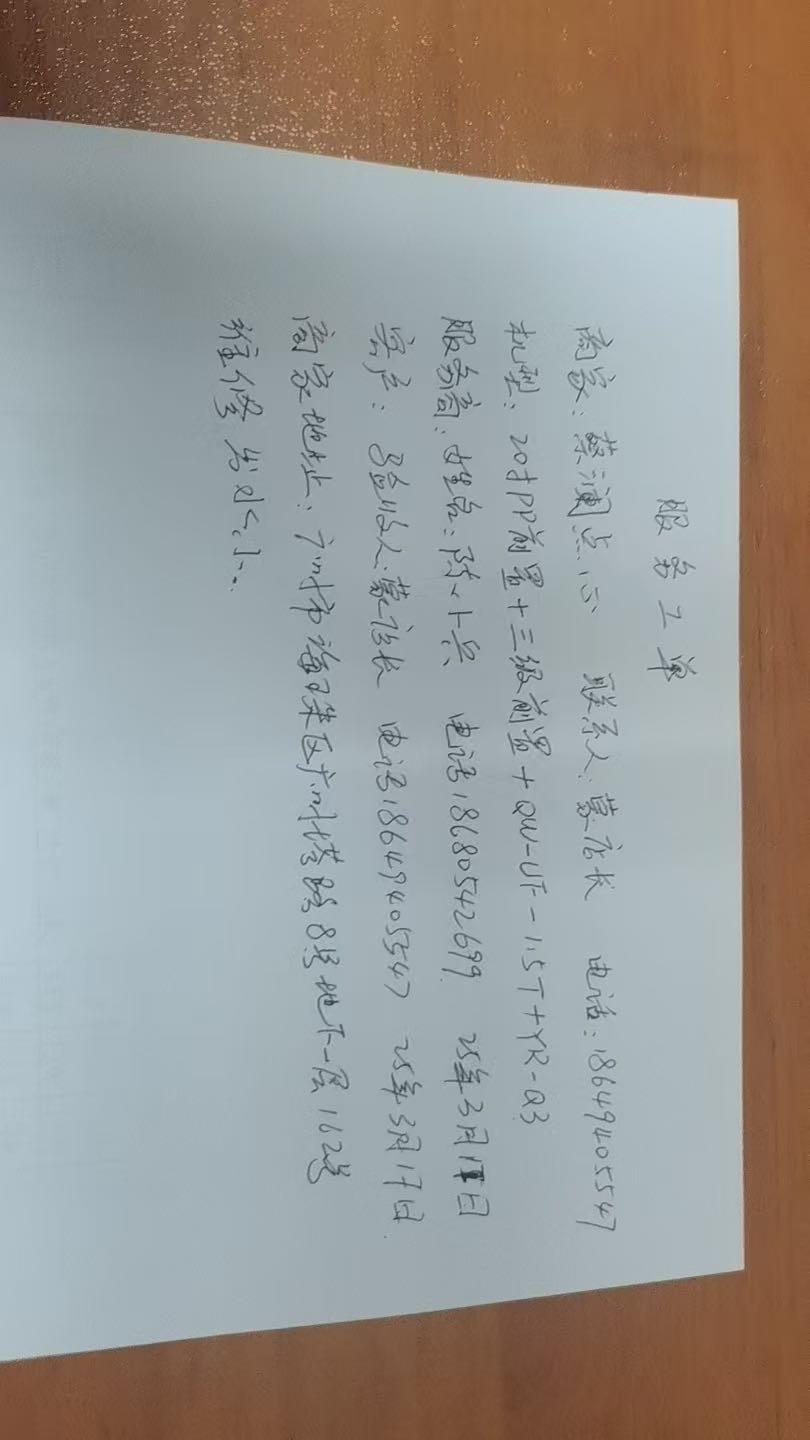 服务工单
商家：蔡澜点心 联系人：蒙店长 电话：18649405547
机型：20寸PP前置+三级前置+QW-UF-1.5T+YR-Q3
服务商：姓名：陈小兵 电话18680542699 25年3月17日
客户：验收人：蒙店长 电话18649405547 25年3月17日
商家地址：广州市海珠区广州塔路8号地下一层162号
维修 出水小.